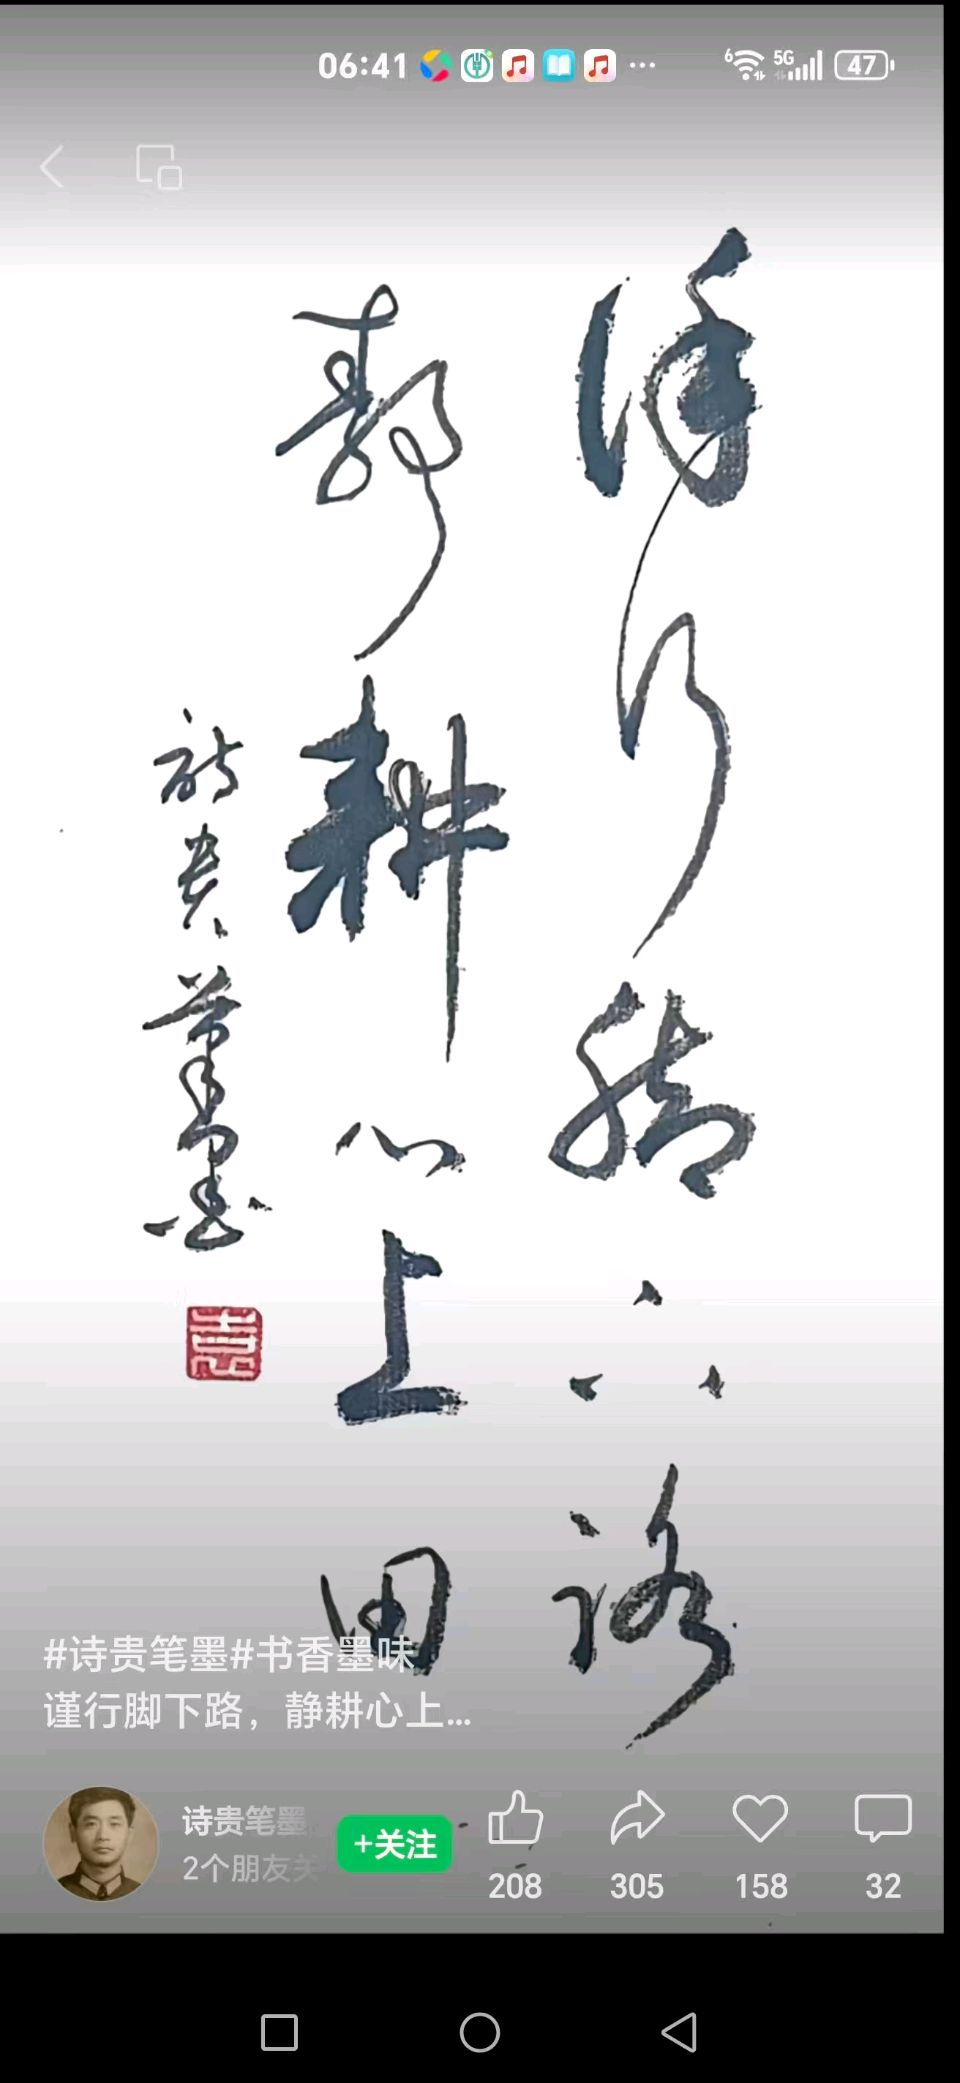 06:41
6 5G 47
谨行脚下路
静耕心上田
诗贵笔墨
#诗贵笔墨#书香墨味
谨行脚下路，静耕心上...
诗贵笔墨
2个朋友关
+关注
208 305 158 32